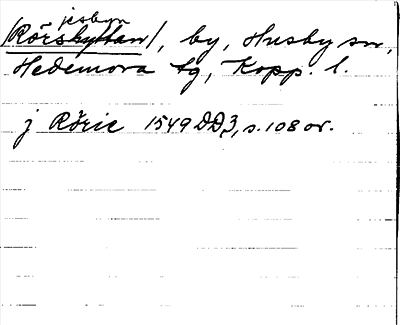 jesbyn
/Rörshyttan/, by, Husby sn,
Hedemora tg, Kopp. l.
j Röric 1549 DD3, s. 108 or.